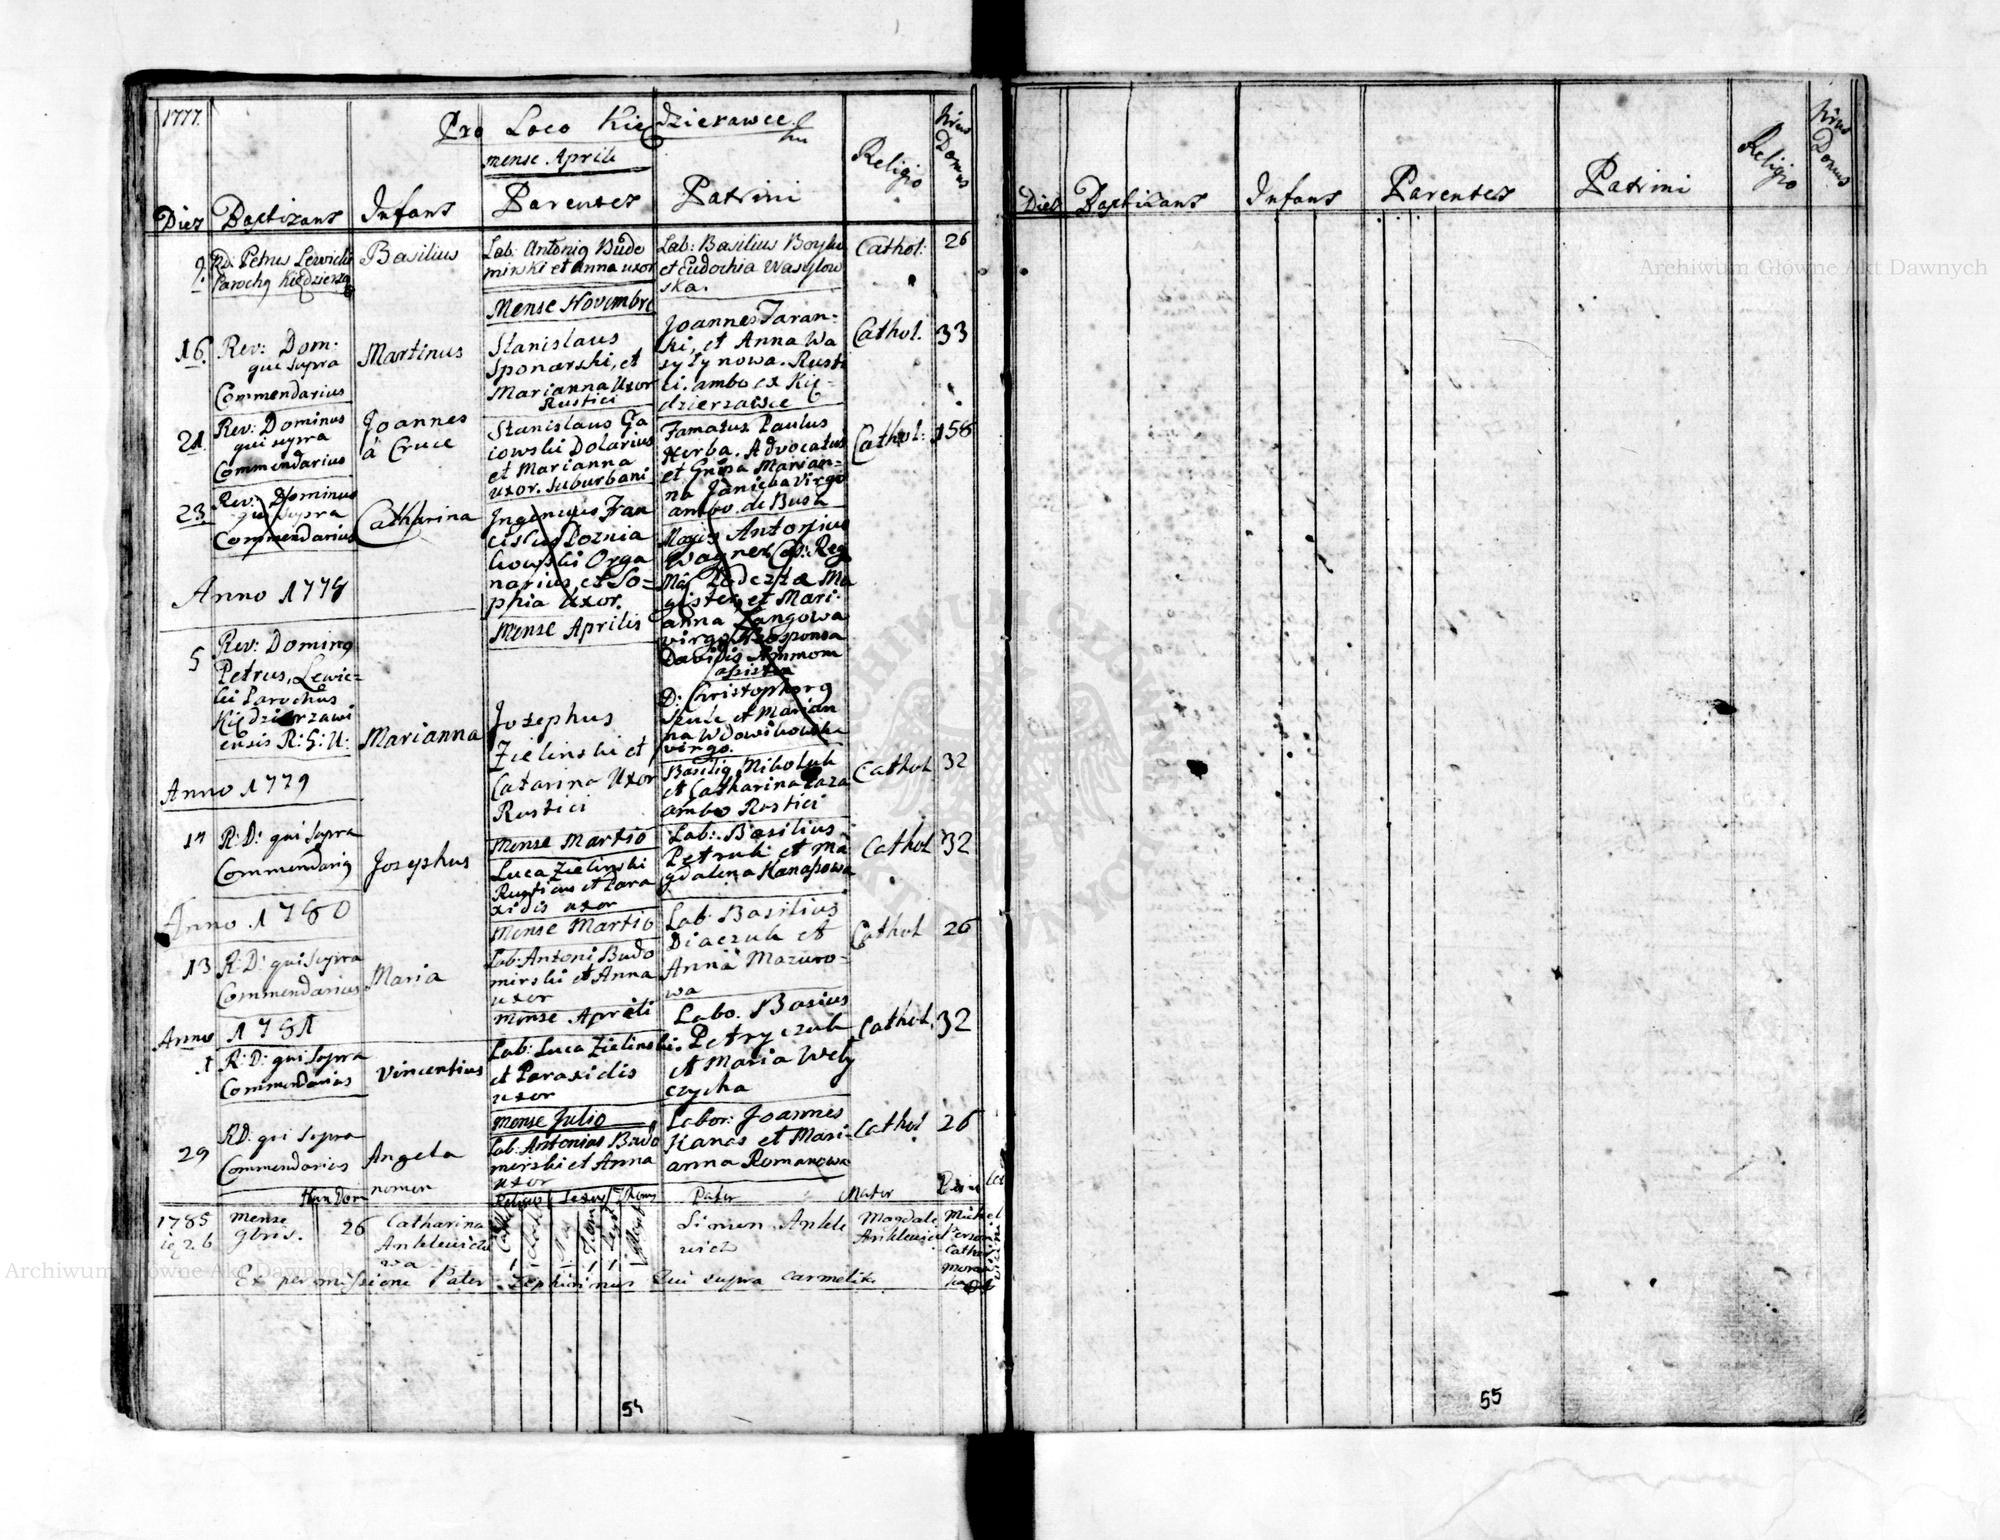 1777.
Pro Loco Kiędzierawce
mense Aprili
Dies Baptizans Infans Parentes Patrini Religio Nrus Domus
9. Rd: Petrus Lewicki
Parochq Kiędzierza
Basilius
Lab: Antoniq Budo
mirski et Anna uxor
Lab: Basilius Boyko
et Eudochia Wasylow
ska.
Cathol: 26
Mense Novembre
16. Rev: Dom:
qui supra
Commendarius
Martinus
Stanislaus
Sponarski, et
Marianna Uxor
Rustici
Joannes Taran-
ki, et Anna Wa
sylynowa. Rusti
ci. ambo ex Kię-
dzierzawce
Cathol. 33
21. Rev: Dominus
qui supra
Commendarius
Joannes
à Cruce
Stanislaus Ga
iowski Dolarius
et Marianna
uxor. suburbani
Famatus Paulus
Herba. Advocatus
et Gnsa Marian-
na Janicka virgo
ambo. de Busk
Cathol: 158
23. Rev: Dominus
qui supra
Commendarius
Catharina
Ingenuus Fran
ciscus Poznia
kowski Orga
narius, et So-
phia Uxor.
Antonius
Wagner
gister, et Mari-
anna Langowa
virgo
D: Christophorq
Szulc et Marian
na Wdowikowska
virgo.
Anno 1778
Mense Aprilis
5 Rev: Dominq
Petrus, Lewic-
ki Parochus
Kiędzierzawi
ensis R: G: U:
Marianna
Josephus
Zielinski et
Catarina Uxor
Rustici
Basiliq Nikoluk
et Catharina Laza
ambo Rustici
Cathol 32
Anno 1779
Mense Martio
17 R: D: qui supra
Commendariq
Josephus
Luca Zielinski
Rusticus et Para
xidis uxor
Lab: Basilius
Petruk et Ma
gdalena Kanasowa
Cathol 32
Anno. 1780
Mense Martio
13 R: D: qui supra
Commendarius
Maria
Lab: Antoni Budo
mirski et Anna
uxor
Lab: Basilius
Diaczuk et
Anna Mazuro-
wa
Cathol 26
Anno 1781
Mense Aprili
1 R: D: qui supra
Commendarius
Vincentius
Lab: Luca Zielinski.
et Paraxidis
uxor
Labo. Basius
Petryczuk
et Maria Wely
czycha
Cathol. 32
Mense Julio
29 RD: qui supra
Commendarius
Angela
Lab: Antonius Budo
mirski et Anna
uxor
Labor: Joannes
Kanas et Mari-
anna Romanowa
Cathol 26
Num Dom nomen Religio Sexus Thorus Pater Mater
1785
26
mense
9bris.
26
Catharina
Ankiewich
wa
Simon Ankie
wich
Magdale
Ankiewich
Ex permissione Pater Zephirinus Qui supra Carmelita
54
Dies Baptizans Infans Parentes Patrini Religio Nrus Domus
55
Archiwum Główne Akt Dawnych
Archiwum Główne Akt Dawnych
ARCHIWUM GŁÓWNE AKT DAWNYCH